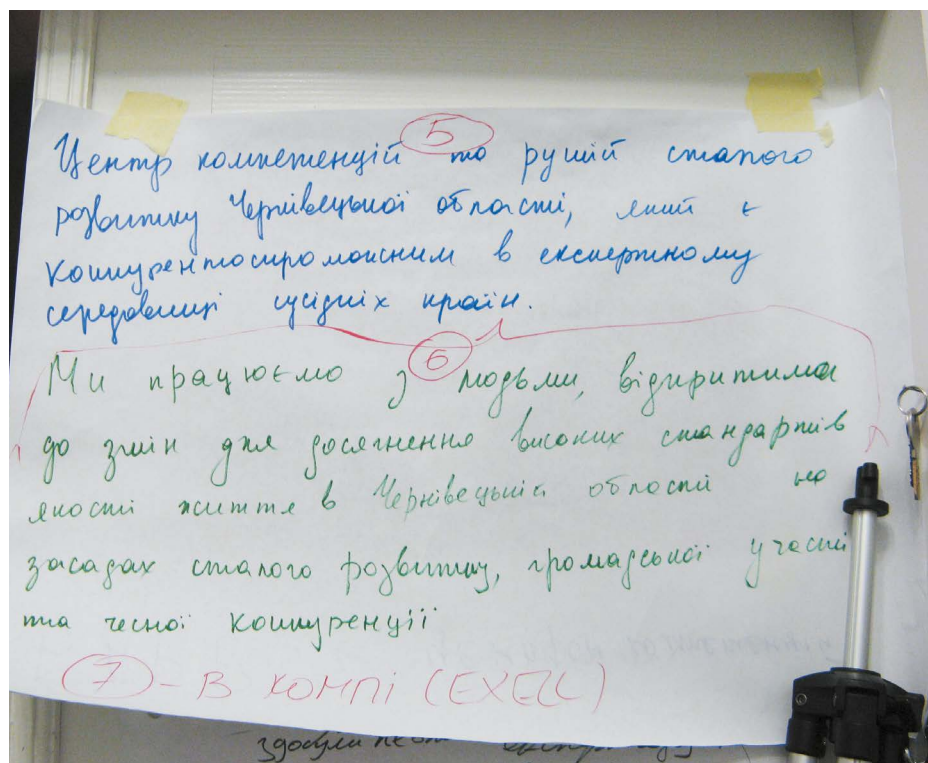 5
Центр компетенцій та рушій сталого
розвитку Чернівецької області, який є
конкурентоспроможним в експертному
середовищі сусідніх країн.
6
Ми працюємо з людьми, відкритими
до змін для досягнення високих стандартів
якості життя в Чернівецькій області на
засадах сталого розвитку, громадської участі
та чесної конкуренції
7 - В КОМПІ (EXELL)